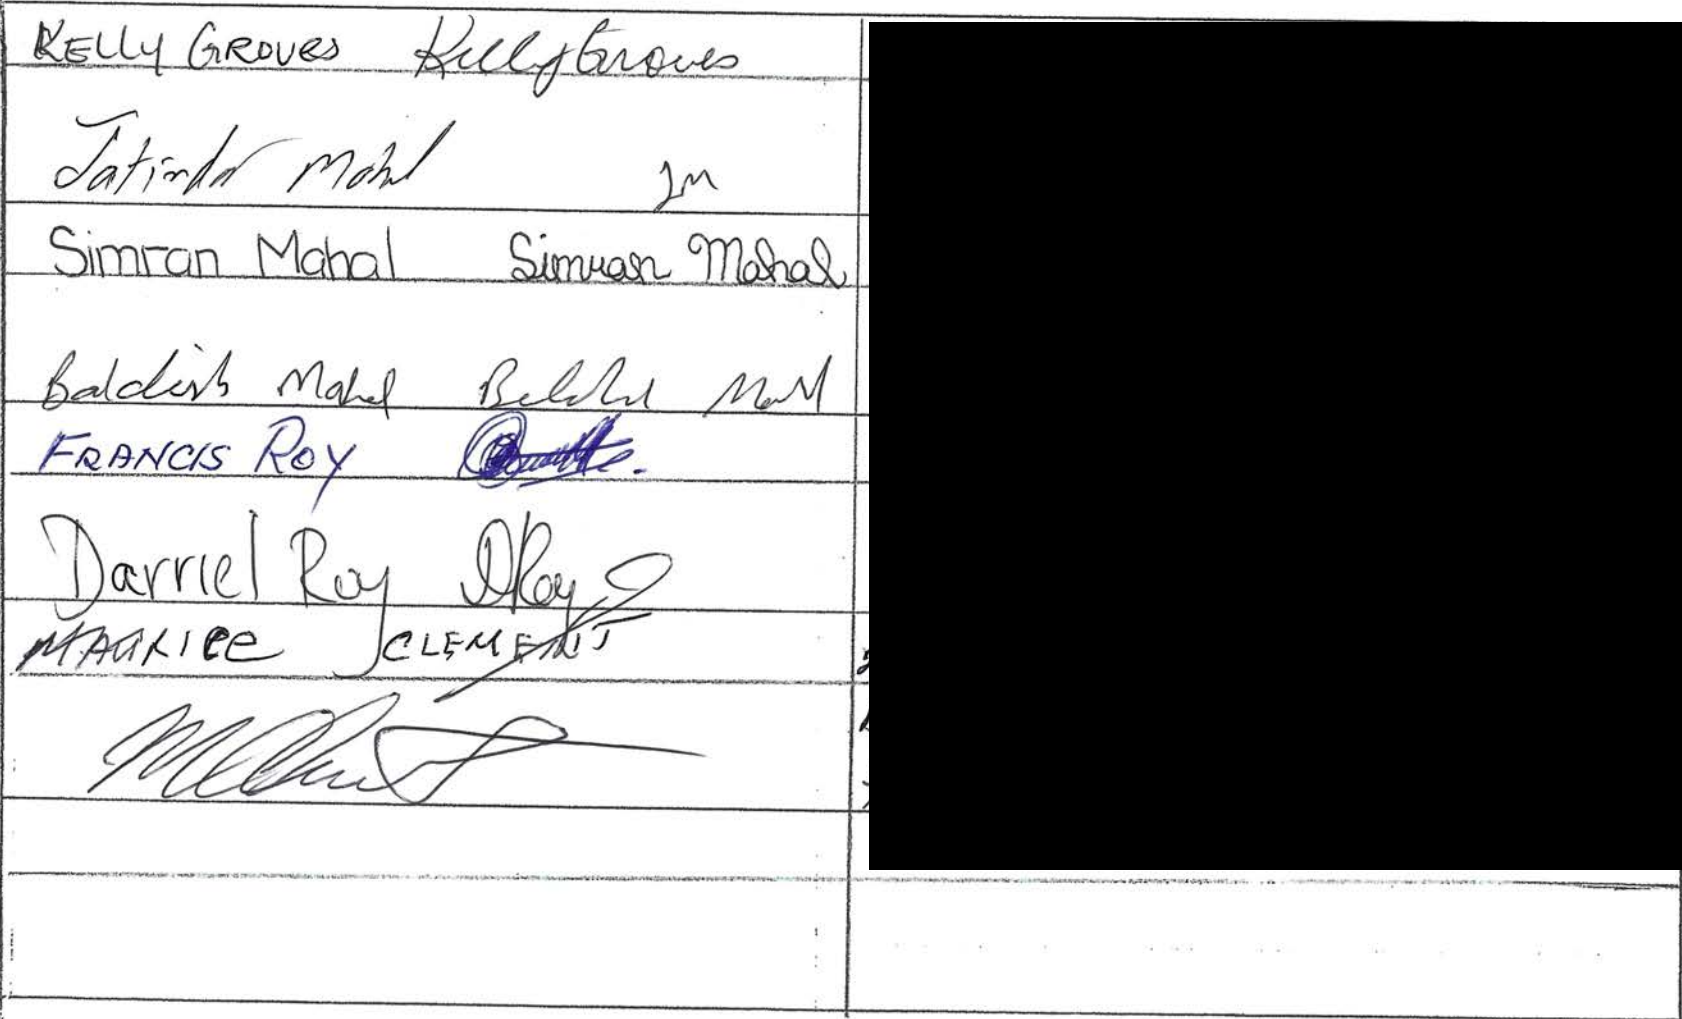 KELLY GROVES Kelly Groves
Jatinder Mahal JM
Simran Mahal Simran Mahal
Mahal
FRANCIS ROY
Darriel Roy DRoy
MAURICE CLEMENT